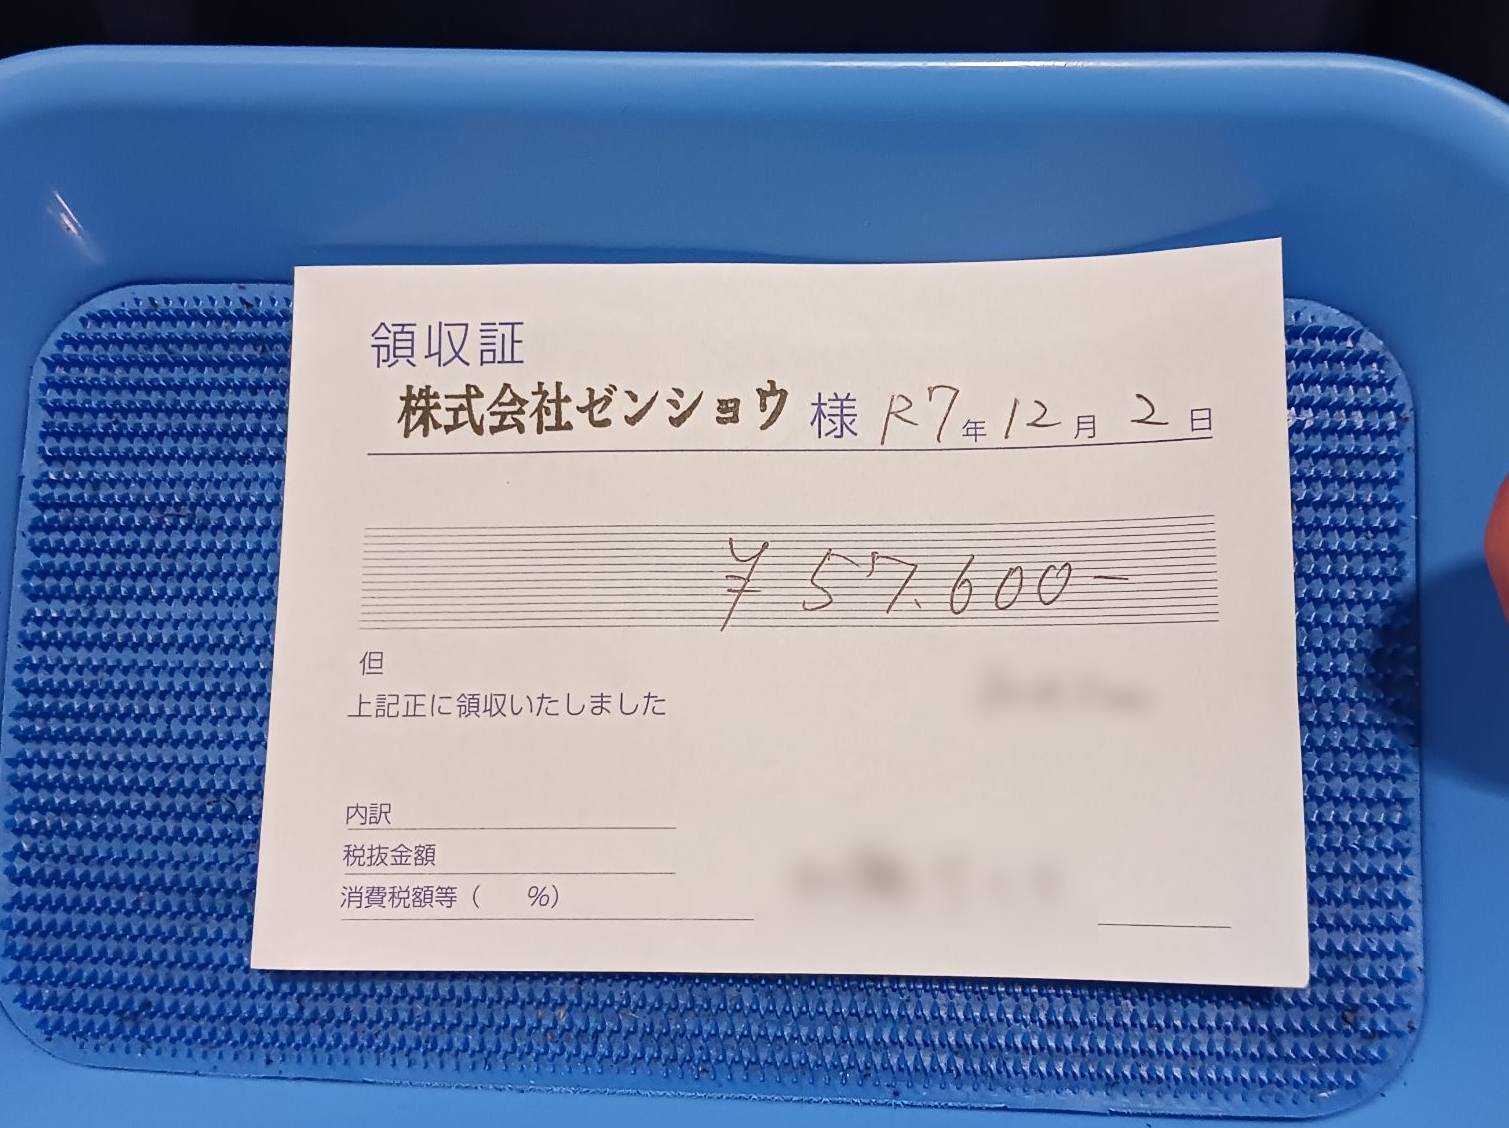 領収証
株式会社ゼンショウ 様 R7年12月2日
¥57.600-
但
上記正に領収いたしました
内訳
税抜金額
消費税額等( %)